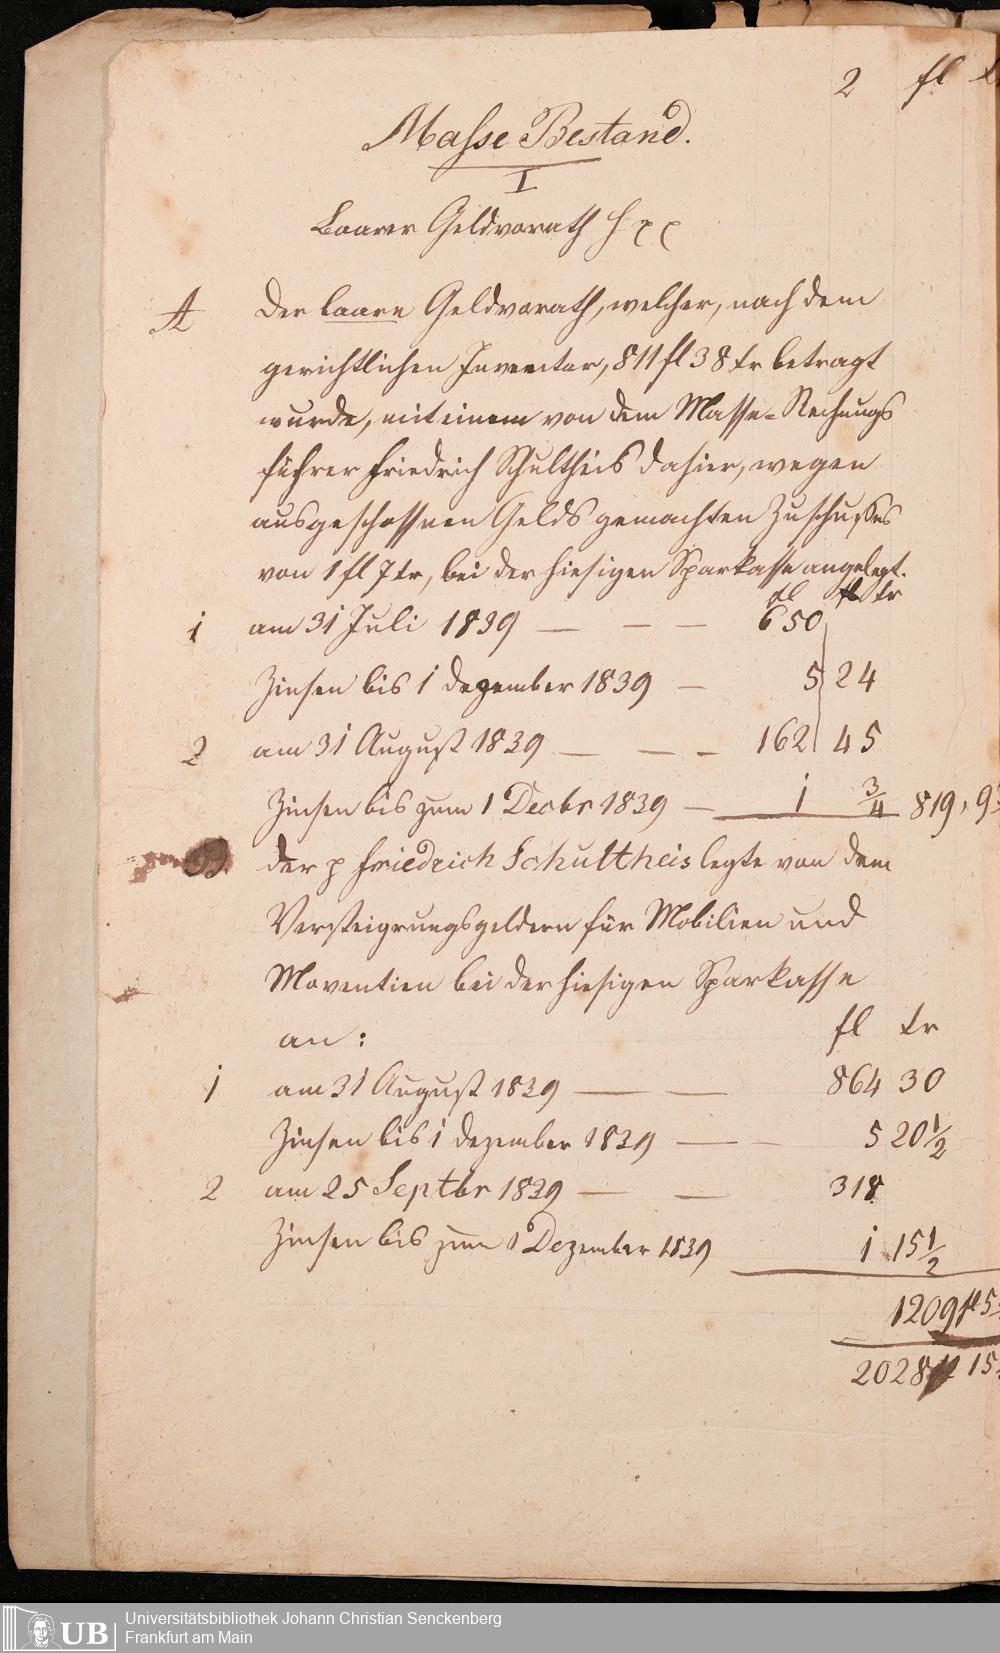 2 fl
Masse Bestand.
I
Baarer Geldvorath
A Der baare Geldvorath, welcher, nach dem
gerichtlichen Inventar, 811 fl 38 kr betragt
wurde, mit einem von dem Masse-Rechnungs
führer Friedrich Schultheis dahier, wegen
ausgeschossnen Gelds gemachten Zuschusses
von 1 fl 7 kr, bei der hiesigen Sparkasse angelegt.
fl kr
1 am 31 Juli 1839 — — — 650
Zinsen bis 1 Dezember 1839 — 5 24
2 am 31 August 1839 — — — 162 45
Zinsen bis zum 1 Decbr 1839 — 1 3/4 819, 9
B der p Friedrich Schultheis legte von dem
Versteigrungsgeldern für Mobilien und
Moventien bei der hiesigen Sparkasse
an: fl kr
1 am 31 August 1839 — — 864 30
Zinsen bis 1 Dezember 1839 — — 5 20 1/2
2 am 25 Septbr 1839 — — 318
Zinsen bis zum 1 Dezember 1839 1 15 1/2
1209 fl 5
2028 fl 15
UB
Universitätsbibliothek Johann Christian Senckenberg
Frankfurt am Main